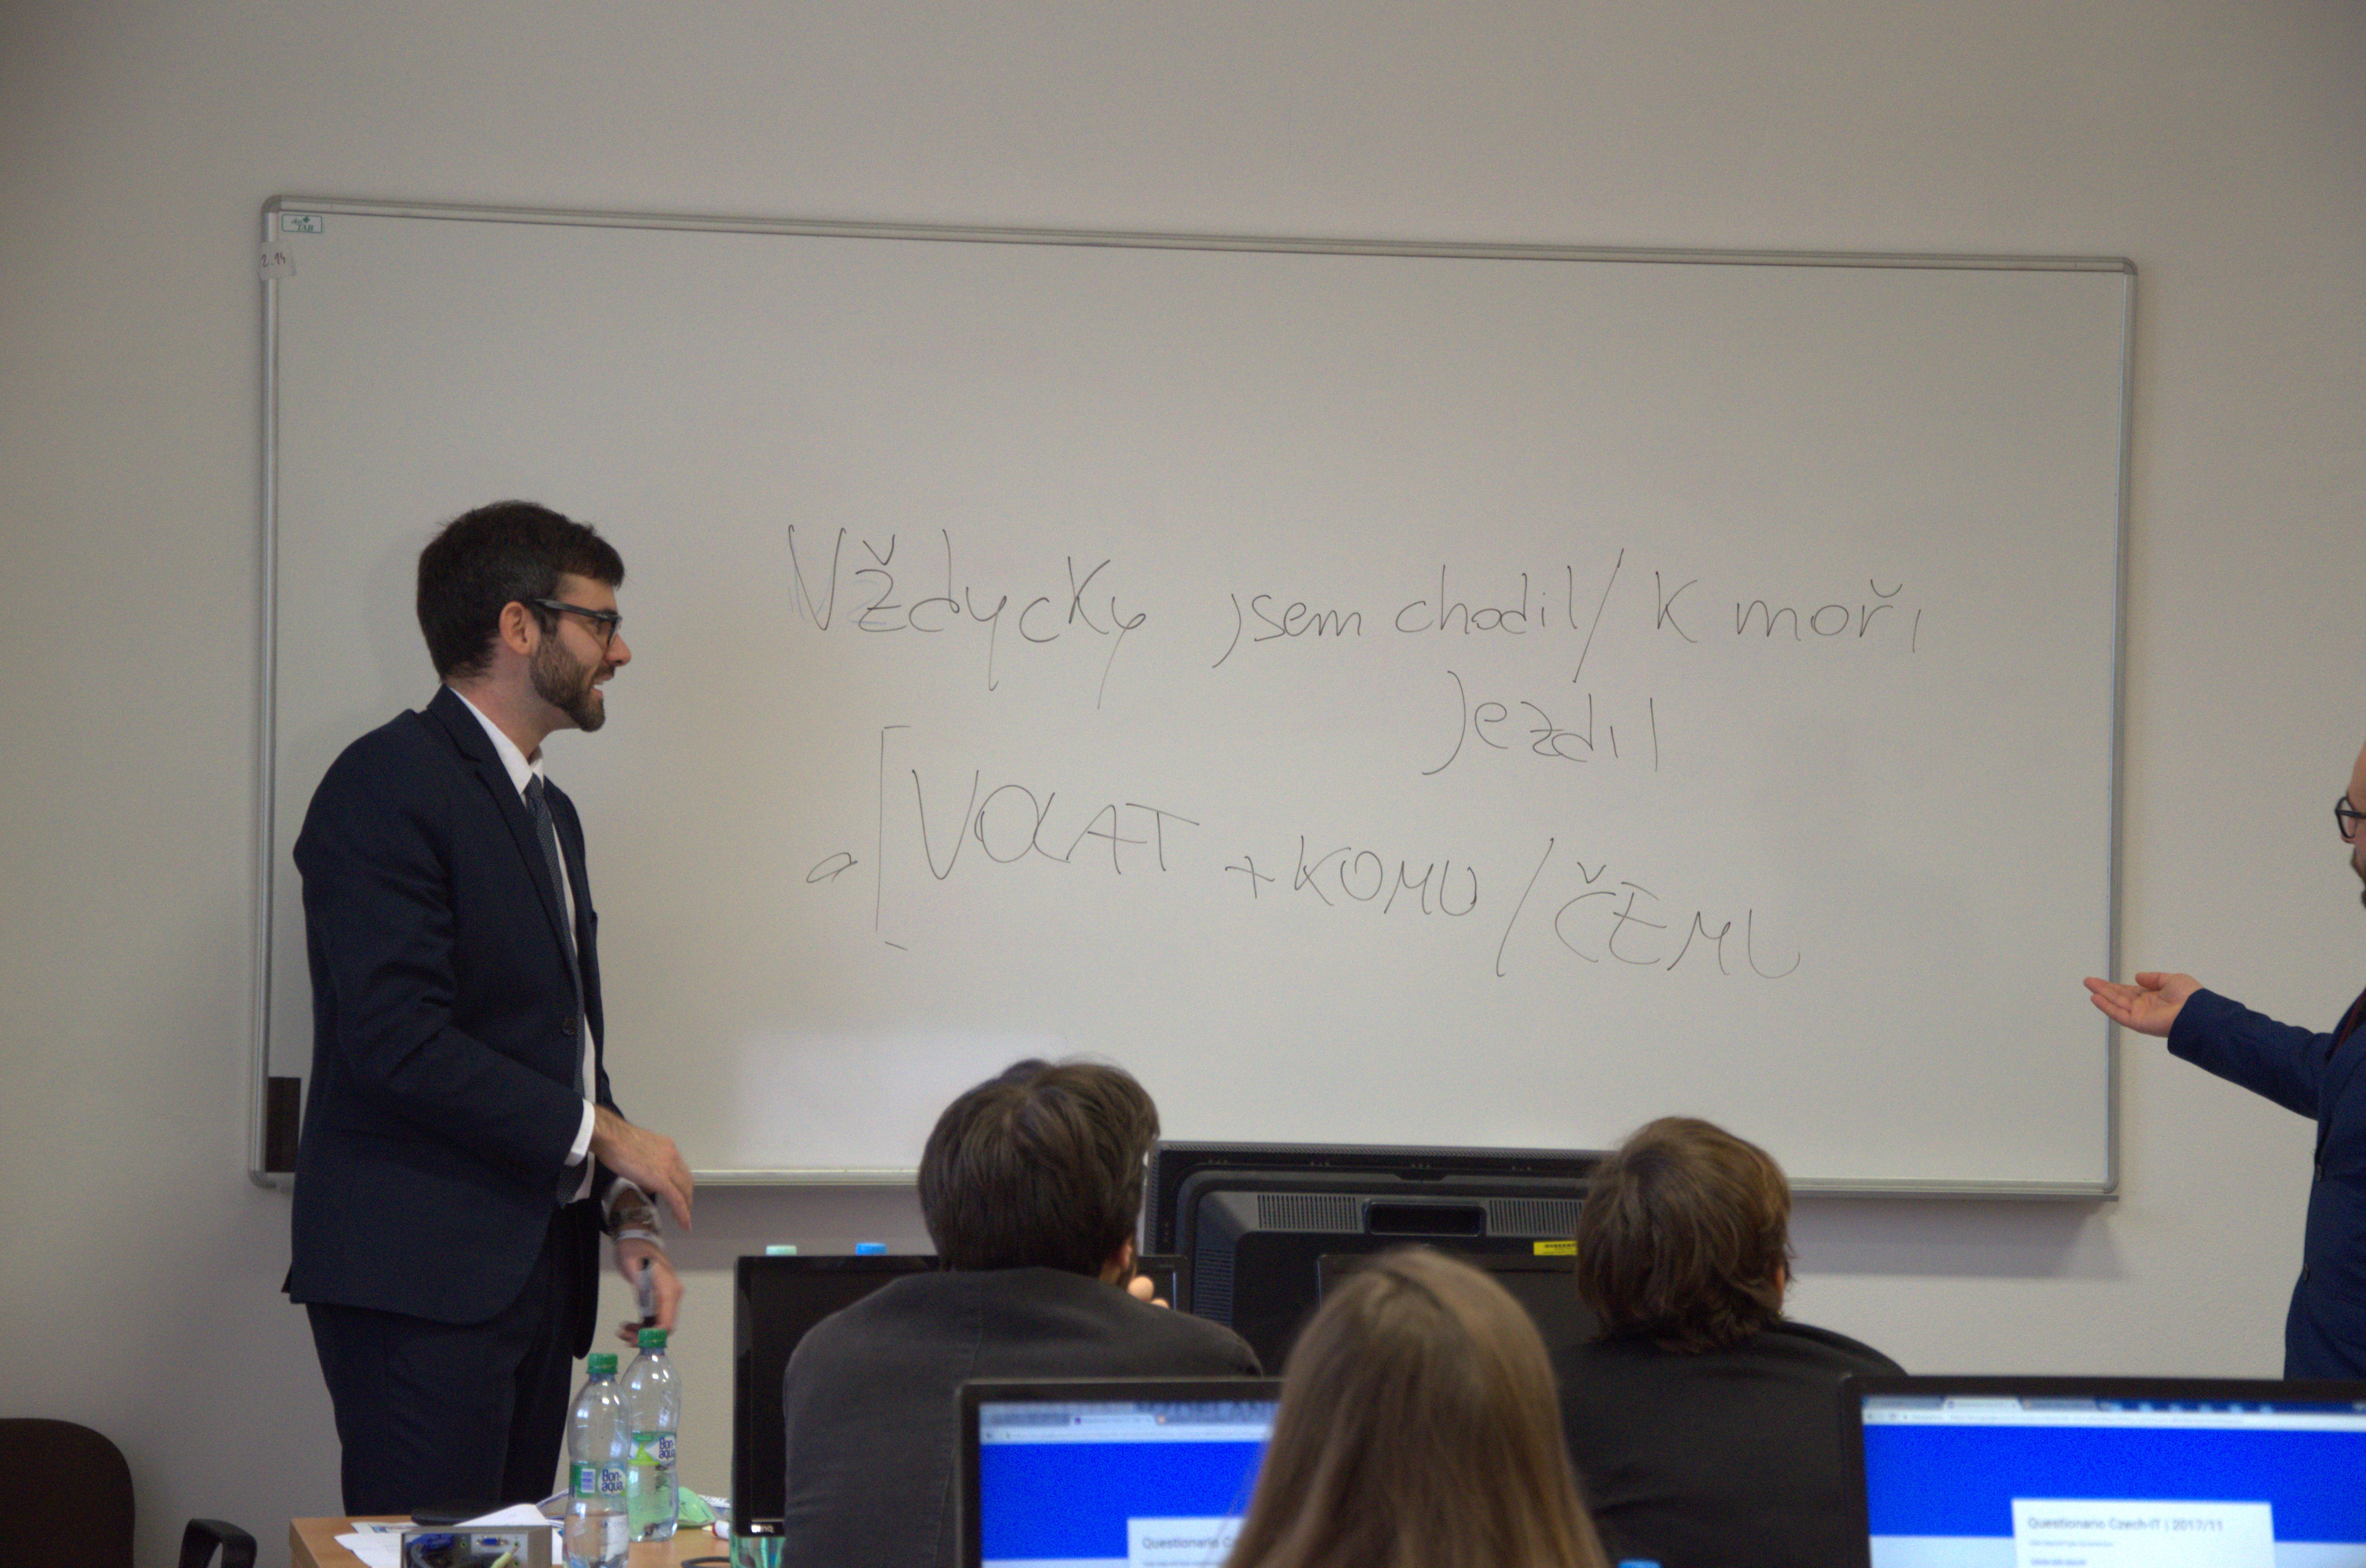 2.14
Vždycky jsem chodil/ k moři
jezdil
a [VOLAT + KOMU / ČEMU
Bon aqua
Bon aqua
BenQ
Questionario C
Questionario Czech-IT | 2017/11